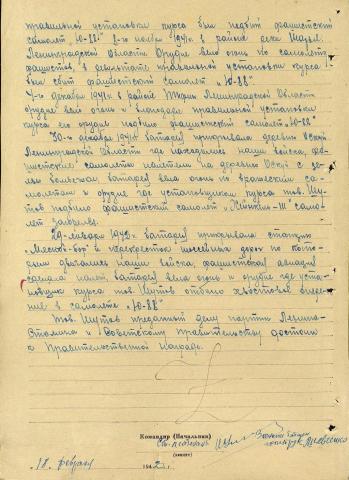 правильной установки курса был подбит фашистский
самолет "Ю-88" 8-го ноября 1941г в районе села
Ленинградской Области. Орудие вело огонь по самолетам
фашистов в результате правильной установки курса
был сбит фашистский самолет "Ю-88"
4-го декабря 1941г в районе Ленинградской Области
орудие вело огонь и благодаря правильной установки
курса его орудие подбило фашистский самолет "Ю-88"
30-го декабря 1941г батарея прикрывала деревню Оскуй
Ленинградской Области где находились наши войска, фа-
шистские самолеты налетели на деревню Оскуй с це-
лью бомбежки батарея вела огонь по вражеским са-
молетам и орудие где установщиком курса тов. Шу-
тов подбило фашистский самолет "Хейнкель-111" само-
лет загорелся.
29-января 1942г батарея прикрывала станцию
"Мясной-бор" и перекресток шоссейных дорог по кото-
рым двигались наши войска, фашистская авиация
сделала налет, батарея вела огонь и орудие где уста-
новщик курса тов. Шутов отбило хвостовое опере-
ние в самолете "Ю-88"
Тов. Шутов преданный делу партии Ленина-
Сталина и Советскому правительству достоин
к Правительственной награде.
Командир (Начальник)
(подпись)
"18" февраля 1942г